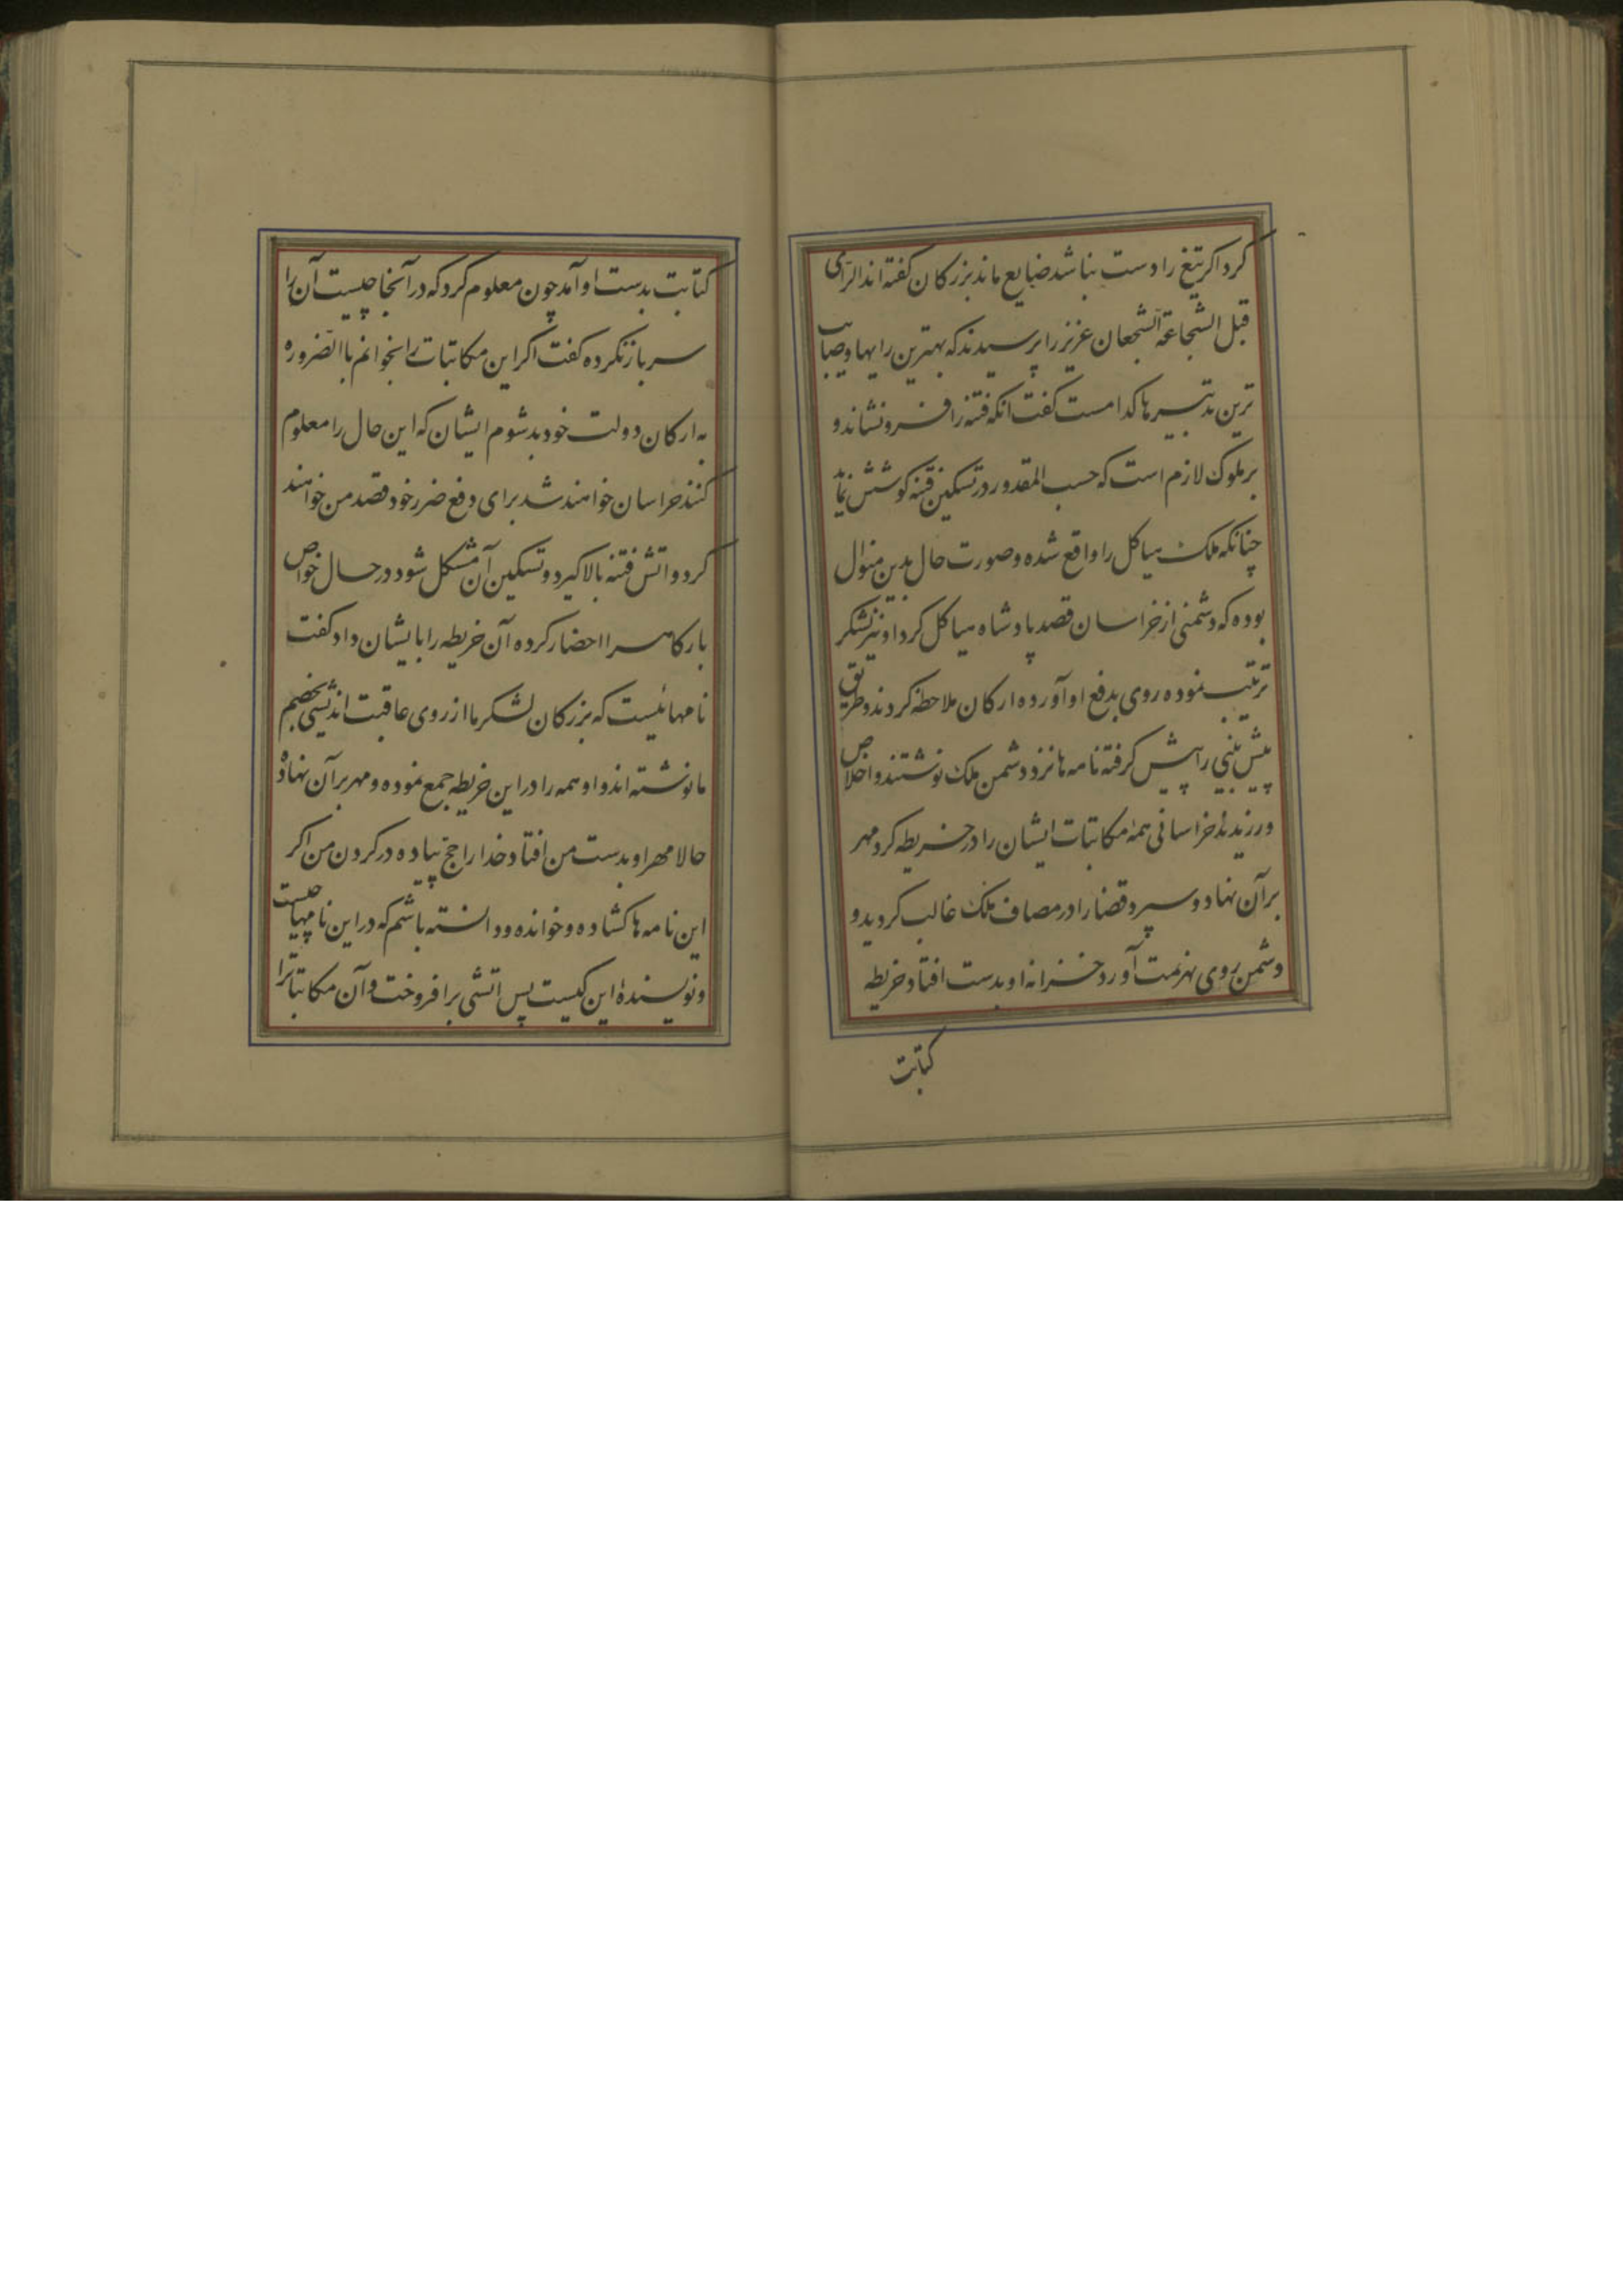 کرد اکر تیغ را دست نباشد ضایع ماند بزرکان کفته اند الرّای
قبل الشجاعة الشجعان عزیز را پرسیدند که بهترین رایها و صایب
ترین تدبیرها کدامست کفت انکه فتنه را فرو نشاند و
بر ملوک لازم است که حسب المقدور در تسکین فتنه کوشش نماید
چنانکه ملک هیاکل را واقع شده و صورت حال بدین منوال
بوده که دشمنی از خراسان قصد پادشاه هیاکل کرد او نیز لشکر
ترتیب نموده روی بدفع او آورده ارکان ملاحظه کردند و طریق
پیش بینی را پیش کرفته نامه ها نزد دشمن ملک نوشتند و اخلاص
ورزیدند خراسانی همهٔ مکاتبات ایشان را در خریطه کرد مهر
بر آن نهاد و سپرد قضا را در مصاف ملک غالب کردید و
دشمن روی بهزیمت آورد خزانه او بدست افتاد خریطه
کتابت
کتابت بدست او آمد چون معلوم کرد که در آنجا چیست آن را
سر باز نکرده کفت اکر این مکاتبات را بخوانم باالضروره
به ارکان دولت خود بد شوم ایشان که این حال را معلوم
کنند هراسان خواهند شد برای دفع ضرر خود قصد من خواهند
کرد و اتش فتنه بالا کیرد و تسکین آن مشکل شود در حال خواص
بارکاه را احضار کرده آن خریطه را بایشان داد کفت
نامهائیست که بزرکان لشکر ما از روی عاقبت اندیشی بخصم
ما نوشته اند و او همه را در این خریطه جمع نموده و مهر بر آن نهاده
حالا مهر او بدست من افتاد خدا را حج پیاده در کردن من اکر
این نامه ها کشاده و خوانده و دانسته باشم که در این نامها چیست
و نویسندهٔ این کیست پس اتشی بر افروخت و آن مکاتباترا